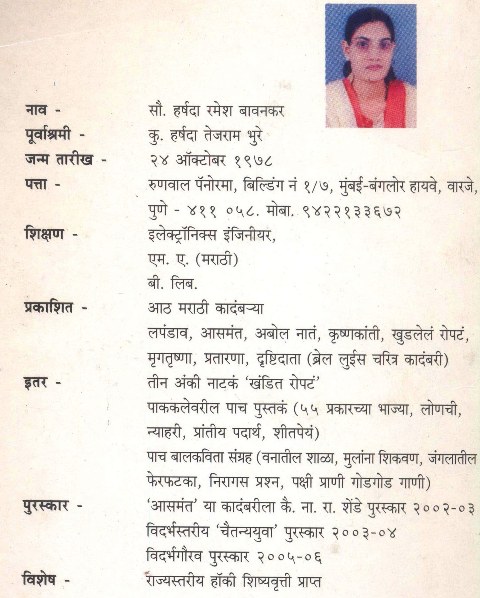 नाव - सौ. हर्षदा रमेश बावनकर
पूर्वाश्रमी - कु. हर्षदा तेजराम भुरे
जन्म तारीख - २४ ऑक्टोबर १९७८
पत्ता - रुणवाल पॅनोरमा, बिल्डिंग नं १/७, मुंबई-बंगलोर हायवे, वारजे,
पुणे - ४११ ०५८. मोबा. ९४२२१३३६७२
शिक्षण - इलेक्ट्रॉनिक्स इंजिनीयर,
एम. ए. (मराठी)
बी. लिब.
प्रकाशित - आठ मराठी कादंबऱ्या
लपंडाव, आसमंत, अबोल नातं, कृष्णकांती, खुडलेलं रोपटं,
मृगतृष्णा, प्रतारणा, दृष्टिदाता (ब्रेल लुईस चरित्र कादंबरी)
इतर - तीन अंकी नाटकं ‘खंडित रोपटं’
पाककलेवरील पाच पुस्तकं (५५ प्रकारच्या भाज्या, लोणची,
न्याहरी, प्रांतीय पदार्थ, शीतपेयं)
पाच बालकविता संग्रह (वनातील शाळा, मुलांना शिकवण, जंगलातील
फेरफटका, निरागस प्रश्न, पक्षी प्राणी गोडगोड गाणी)
पुरस्कार - ‘आसमंत’ या कादंबरीला कै. ना. रा. शेंडे पुरस्कार २००२-०३
विदर्भस्तरीय ‘चैतन्ययुवा’ पुरस्कार २००३-०४
विदर्भगौरव पुरस्कार २००५-०६
विशेष - राज्यस्तरीय हॉकी शिष्यवृत्ती प्राप्त